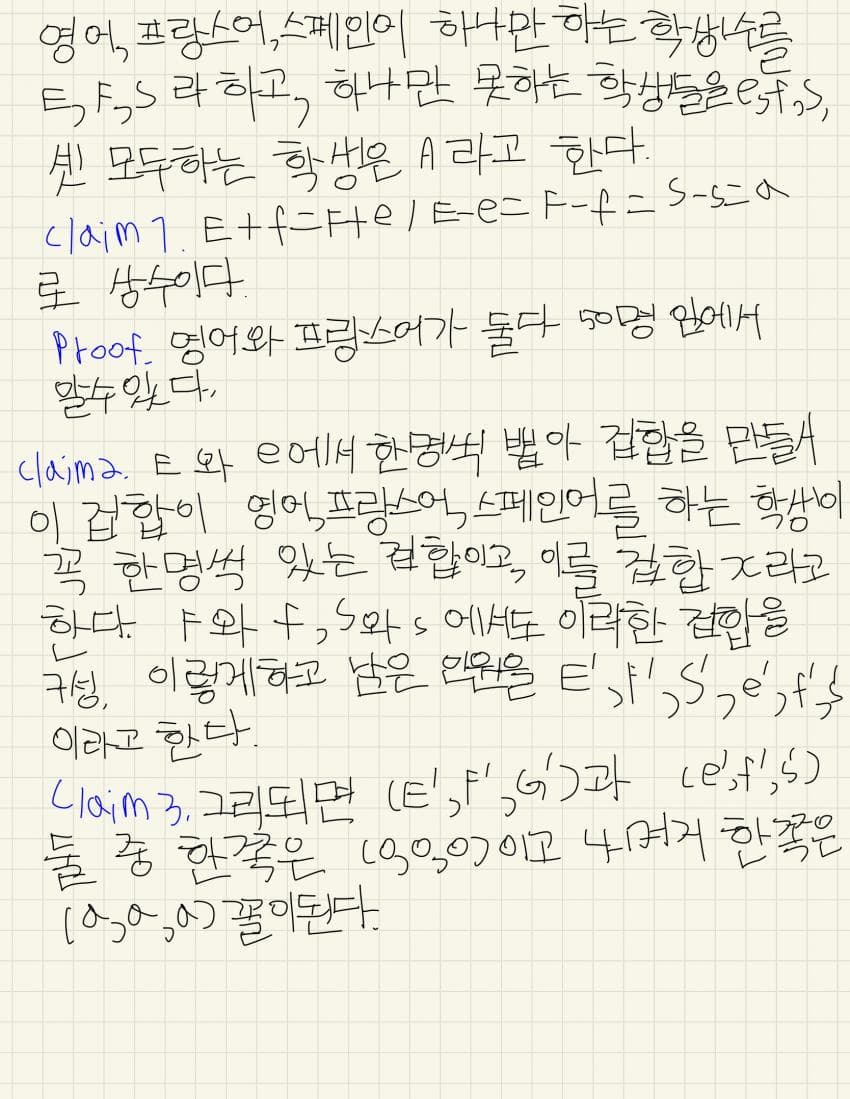 영어, 프랑스어, 스페인어 하나만 하는 학생수를
E, F, S 라 하고, 하나만 못하는 학생들을 e, f, s,
셋 모두하는 학생은 A라고 한다.
Claim 1. E+f=F+e / E-e= F-f = S-s= a
로 상수이다.
Proof. 영어와 프랑스어가 둘다 50명 임에서
알수있다.
Claim 2. E 와 e에서 한명씩 뽑아 집합을 만들시
이 집합이 영어, 프랑스어, 스페인어를 하는 학생이
꼭 한명씩 있는 집합이고, 이를 집합 X라고
한다. F와 f, S와 s 에서도 이러한 집합을
구성. 이렇게하고 남은 인원을 E', F', S', e', f', s'
이라고 한다.
Claim 3. 그리되면 (E', F', G')과 (e', f', s')
둘 중 한쪽은 (0,0,0)이고 나머지 한쪽은
(a,a,a) 꼴이된다.